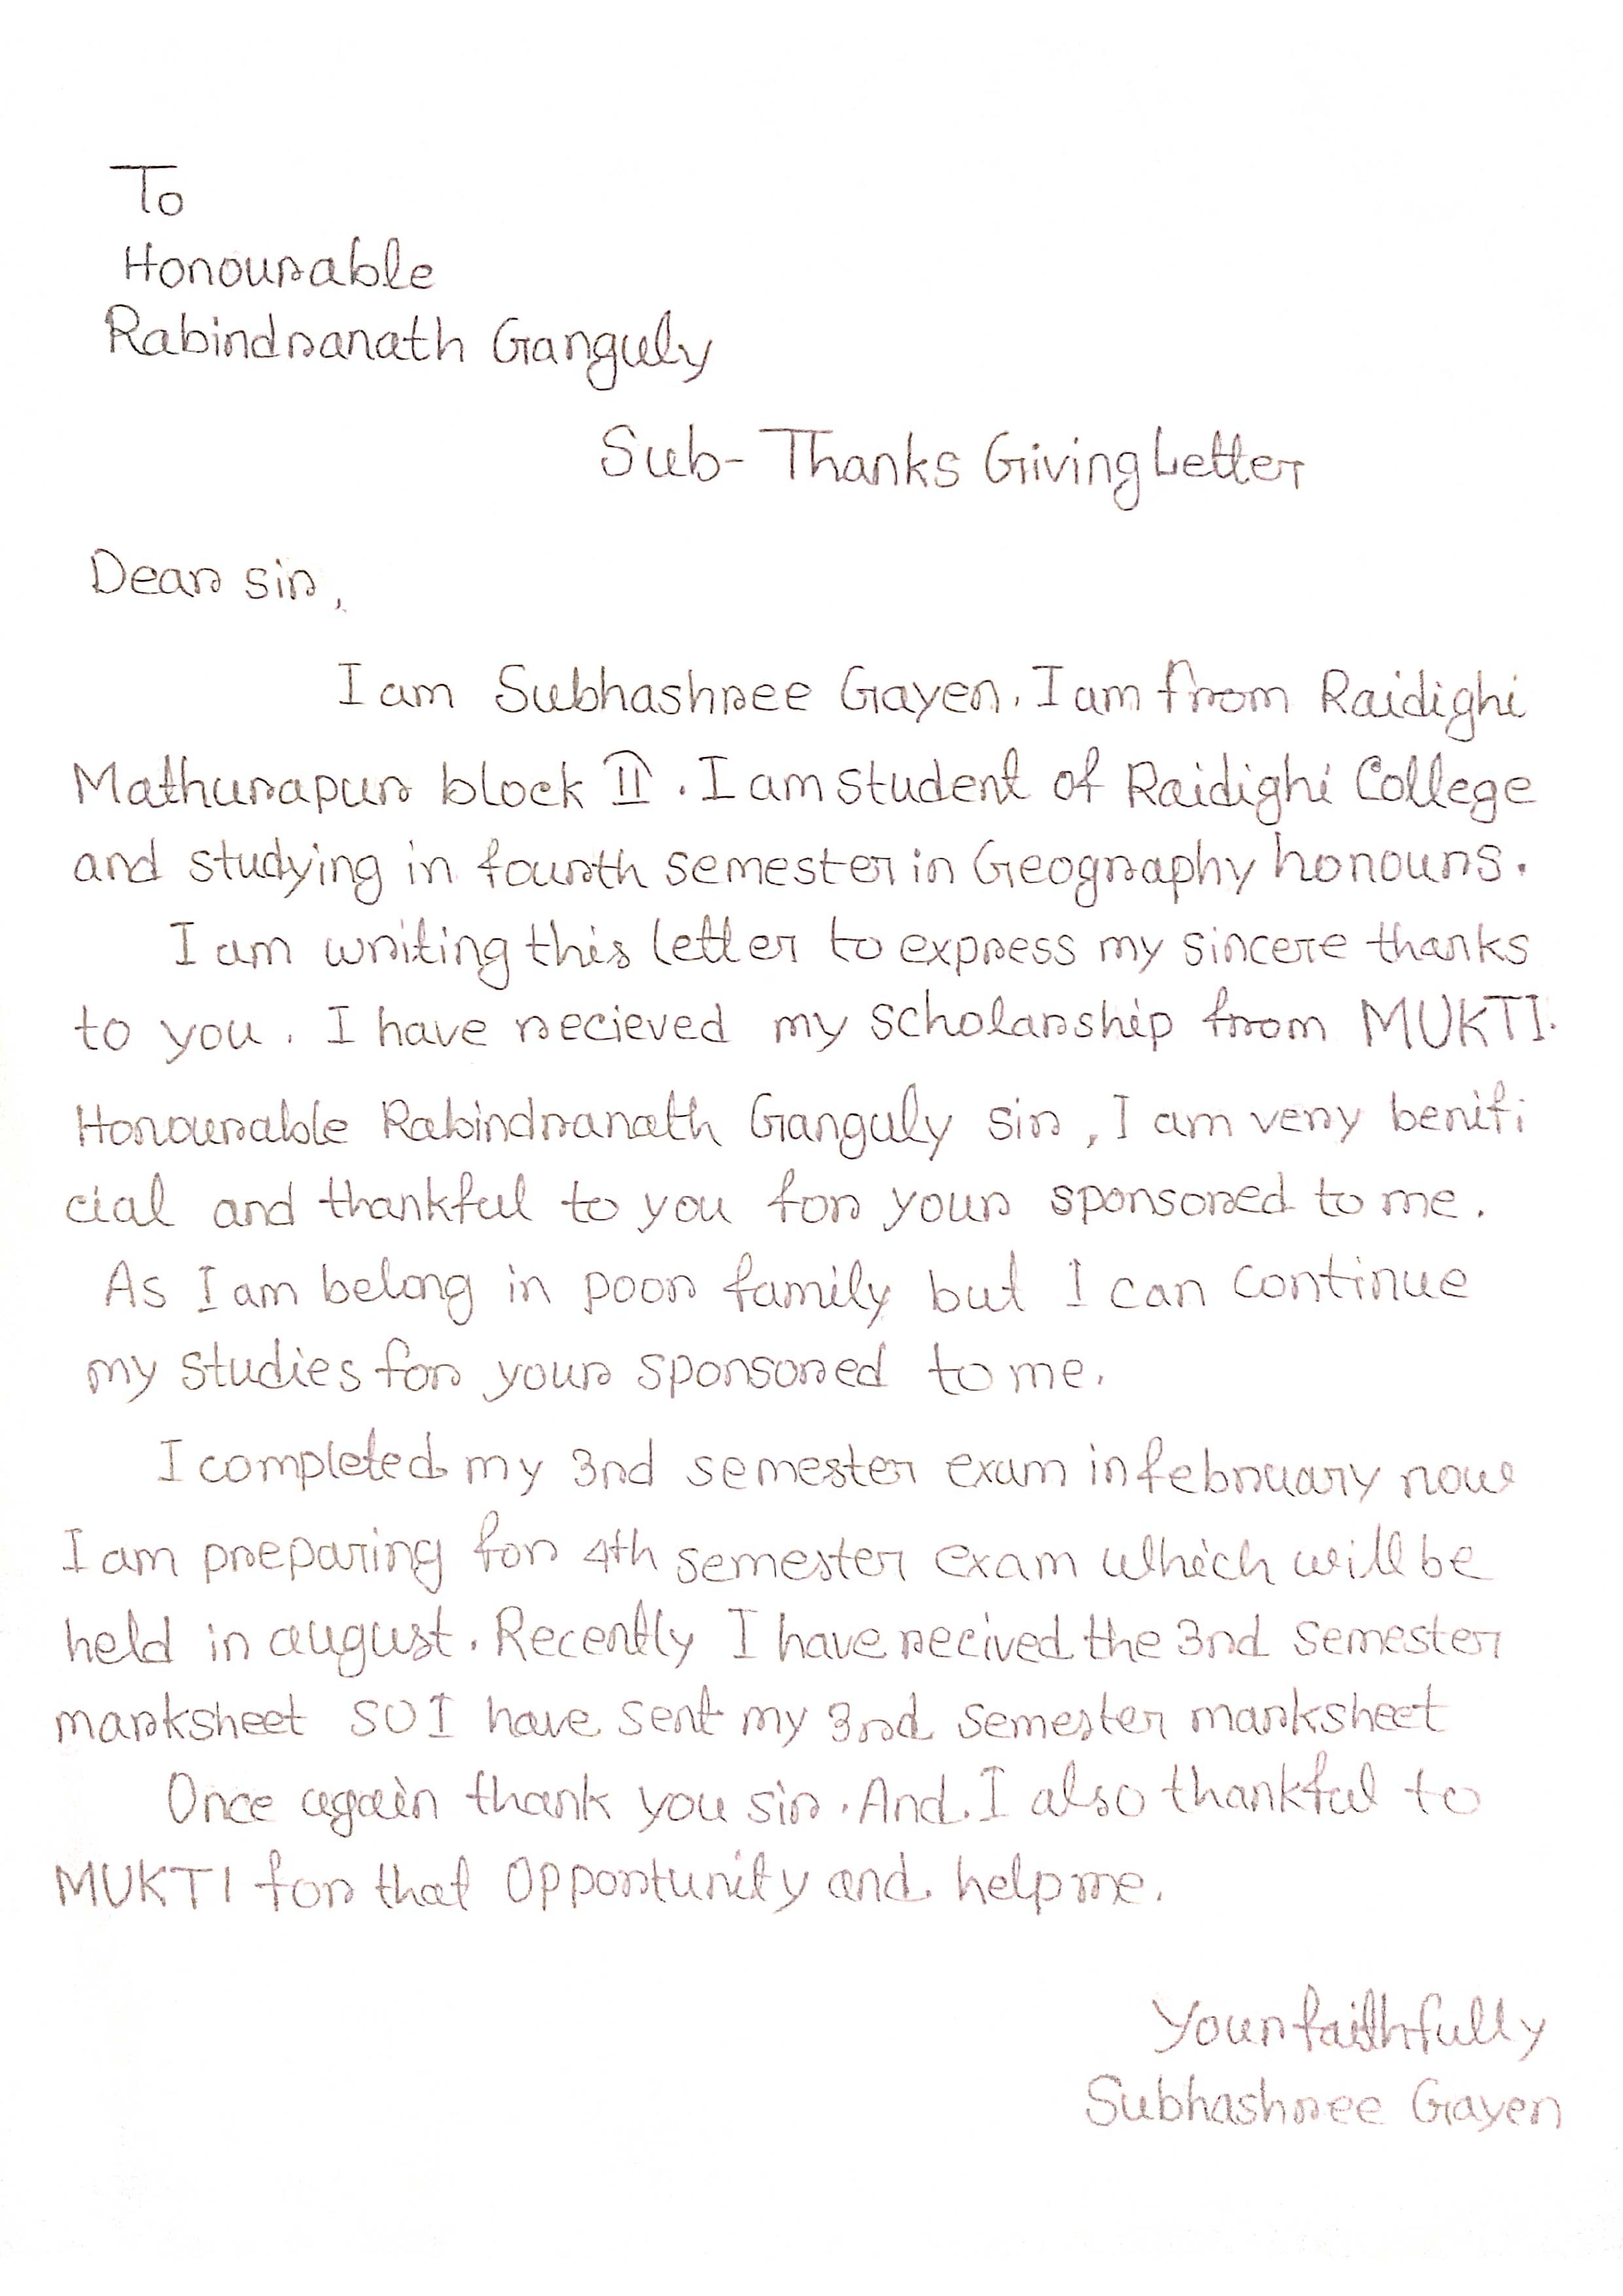 To
Honourable
Rabindranath Ganguly
Sub- Thanks Giving Letter
Dear sir,
I am Subhashree Gayen. I am from Raidighi
Mathurapur block II. I am student of Raidighi College
and studying in fourth semester in Geography honours.
I am writing this letter to express my sincere thanks
to you. I have recieved my scholarship from MUKTI.
Honourable Rabindranath Ganguly sir, I am very benifi
cial and thankful to you for your sponsored to me.
As I am belong in poor family but I can continue
my studies for your sponsored to me.
I completed my 3nd semester exam in february now
I am preparing for 4th semester exam which will be
held in august. Recently I have recived the 3nd semester
marksheet so I have sent my 3nd semester marksheet
Once again thank you sir. And. I also thankful to
MUKTI for that opportunity and help me.
Your faithfully
Subhashree Gayen